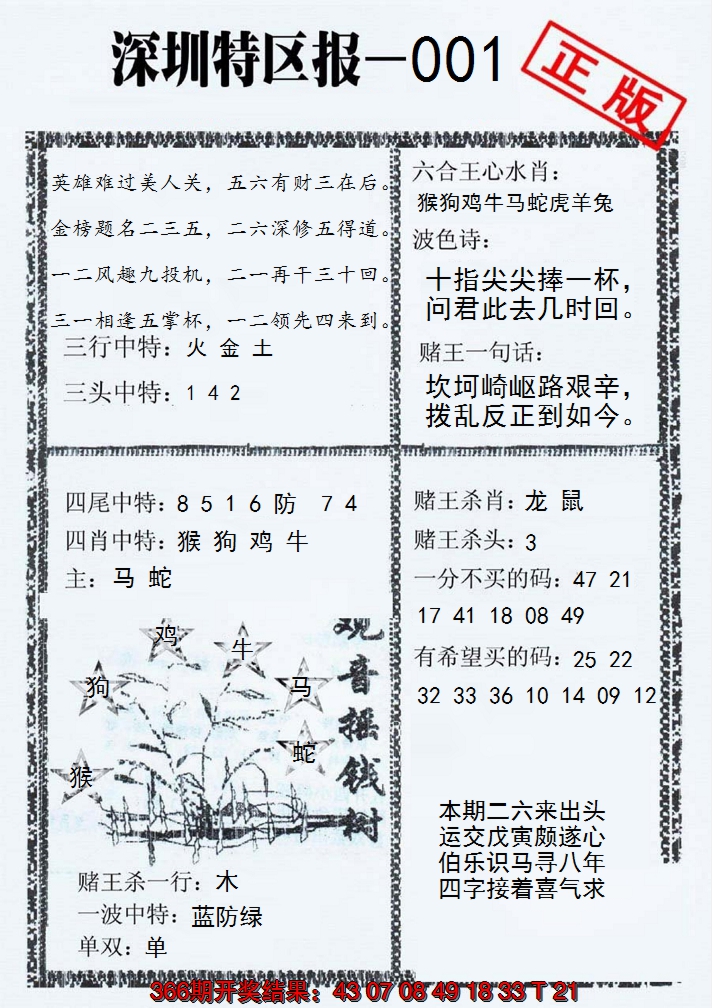 深圳特区报—001
正版
英雄难过美人关，五六有财三在后。
金榜题名二三五，二六深修五得道。
一二风趣九投机，二一再干三十回。
三一相逢五掌杯，一二领先四来到。
三行中特：火 金 土
三头中特：1 4 2
六合王心水肖：
猴狗鸡牛马蛇虎羊兔
波色诗：
十指尖尖捧一杯，
问君此去几时回。
赌王一句话：
坎坷崎岖路艰辛，
拨乱反正到如今。
四尾中特：8 5 1 6 防 7 4
四肖中特：猴 狗 鸡 牛
主：马 蛇
鸡
牛
狗
马
蛇
猴
观音摇钱树
赌王杀一行：木
一波中特：蓝防绿
单双：单
赌王杀肖：龙 鼠
赌王杀头：3
一分不买的码：47 21
17 41 18 08 49
有希望买的码：25 22
32 33 36 10 14 09 12
本期二六来出头
运交戊寅颇遂心
伯乐识马寻八年
四字接着喜气求
366期开奖结果：43 07 08 49 18 33 T 21